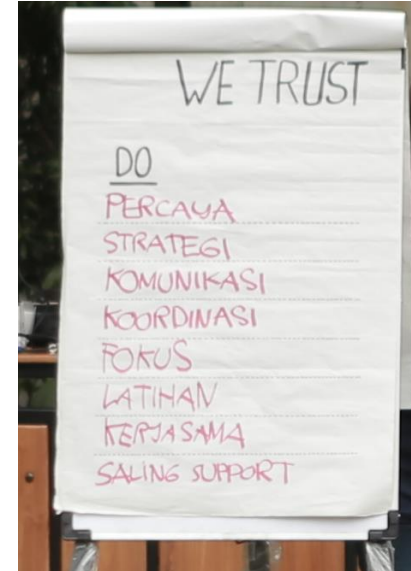 WE TRUST
DO
PERCAYA
STRATEGI
KOMUNIKASI
KOORDINASI
FOKUS
LATIHAN
KERJASAMA
SALING SUPPORT